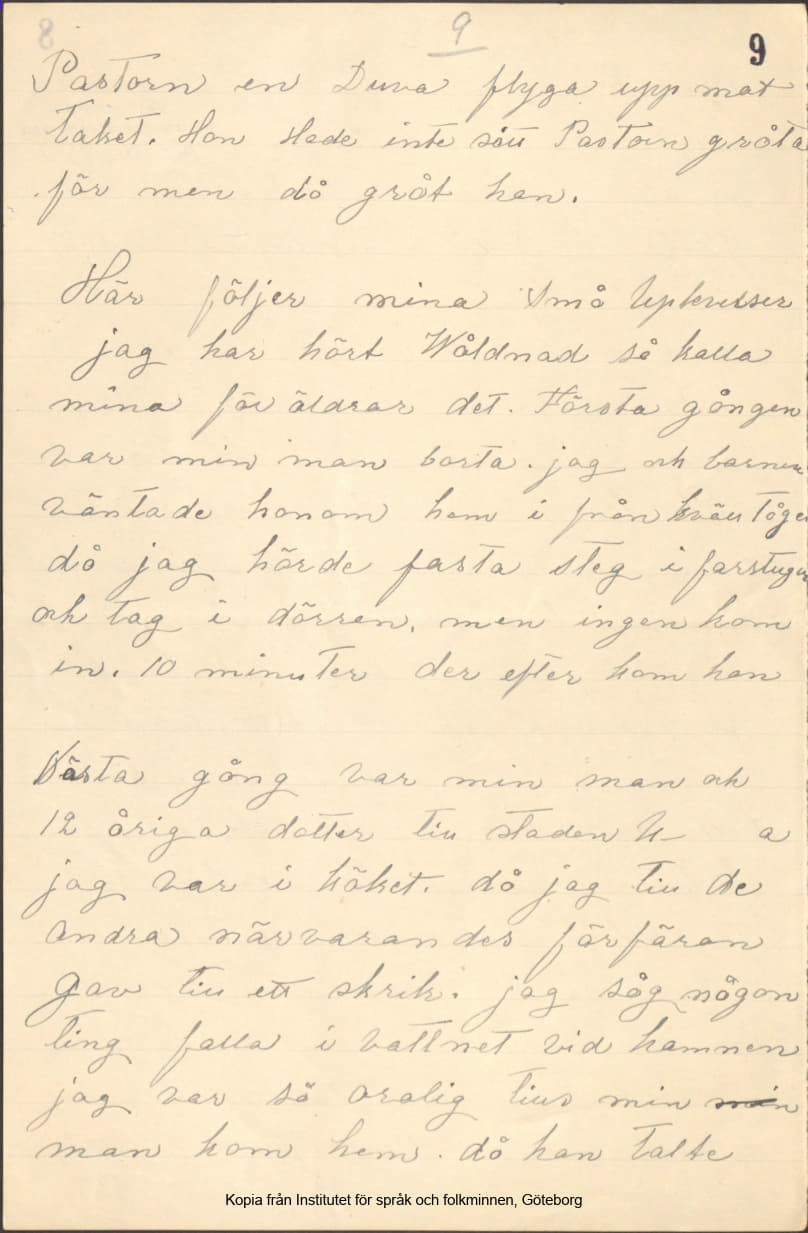 9
9
Pastorn en Duva flyga upp mot
taket. Hon Hade inte sett Pastorn gråta
för men då gröt han.
Här följer mina små
jag har hört Wåldnad så kalla
mina för äldrar det. Första gången
var min man borta. jag och barnen
väntade honom hem i från
då jag hörde fasta steg i farstugun
och tag i dörren. men ingen kom
in. 10 minuter der efter kom han
gång var min man och
12 åriga dotter till staden U- a
jag var i köket. då jag till De
andra närvarandes förfäran
gav till ett skrik. jag såg någon
ting falla i vattnet vid hamnen
jag var så orolig tills min min
man kom hem. då han talte
Kopia från Institutet för språk och folkminnen, Göteborg